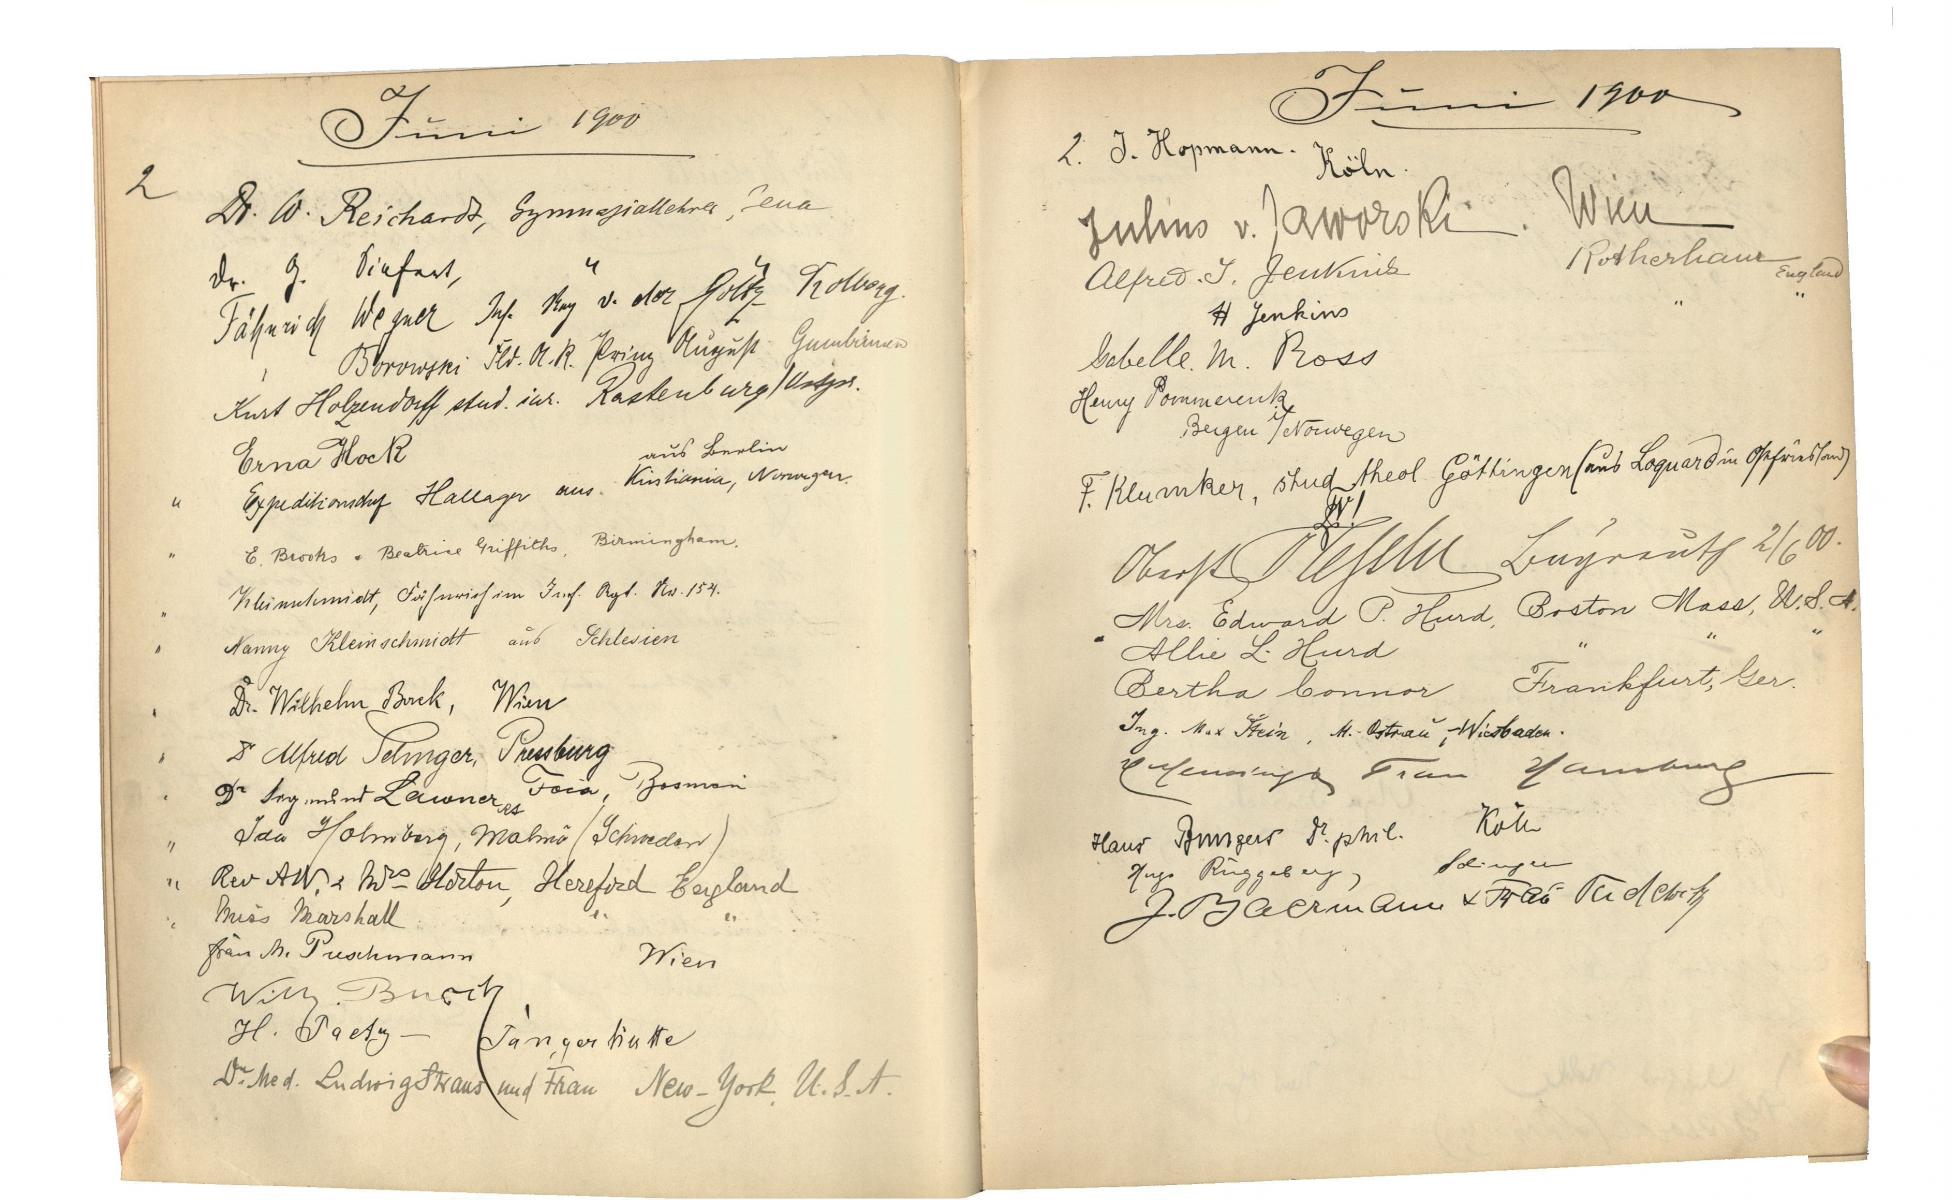 Juni 1900
2
Dr. W. Reichardt, Gymnasiallehrer, Jena
Dr. G. "
Fähnrich Wegner Inf. Rg v. der Goltz Kolberg.
" Borowski Fld. A. R. Prinz August Gumbinnen
Kurt Holzendorff stud. iur. Rastenburg/Ostpr.
Erna Hock aus Berlin
" Expeditionschef Hallager aus Kristiania, Norwegen.
" E. Brooks & Beatrice Griffiths, Birmingham.
" Kleinschmidt, Fähnrich im Inf. Rgt. No. 154.
" Nanny Kleinschmidt aus Schlesien
" Dr. Wilhelm Bock, Wien
" Dr Alfred Selinger, Pressburg
" Dr Sigmund Lawner, Foca, Bosnien
" Ida Holmberg, Malmö (Schweden)
" Rev AW. & Mrs Horton, Hereford England
" Miss Marshall " "
Frau M. Puschmann Wien
Willy Busch
H. Paetz – Tangerhütte
Dr. Med. Ludwig Straus und Frau New-York, U.S.A.
Juni 1900
2. J. Hopmann. Köln.
Julius v. Jaworski. Wien
Alfred. J. Jenkins Rotherham England
H Jenkins " "
Isabelle. M. Ross
Henry Pommerenk
Bergen i/Norwegen
F. Klumker, stud. theol. Göttingen (aus Loquard in Ostfriesland)
Oberst Bayreuth 2/6 00.
Mrs. Edward P. Hurd, Boston Mass, U.S.A.
" Allie L. Hurd " " "
Bertha Connor Frankfurt, Ger.
Ing. Max Stein, M. Ostrau, Wiesbaden.
Frau Hamburg
Hans Bungers Dr. phil. Köln
Hugo Rüggeberg, Solingen
J. Baermann & Frau